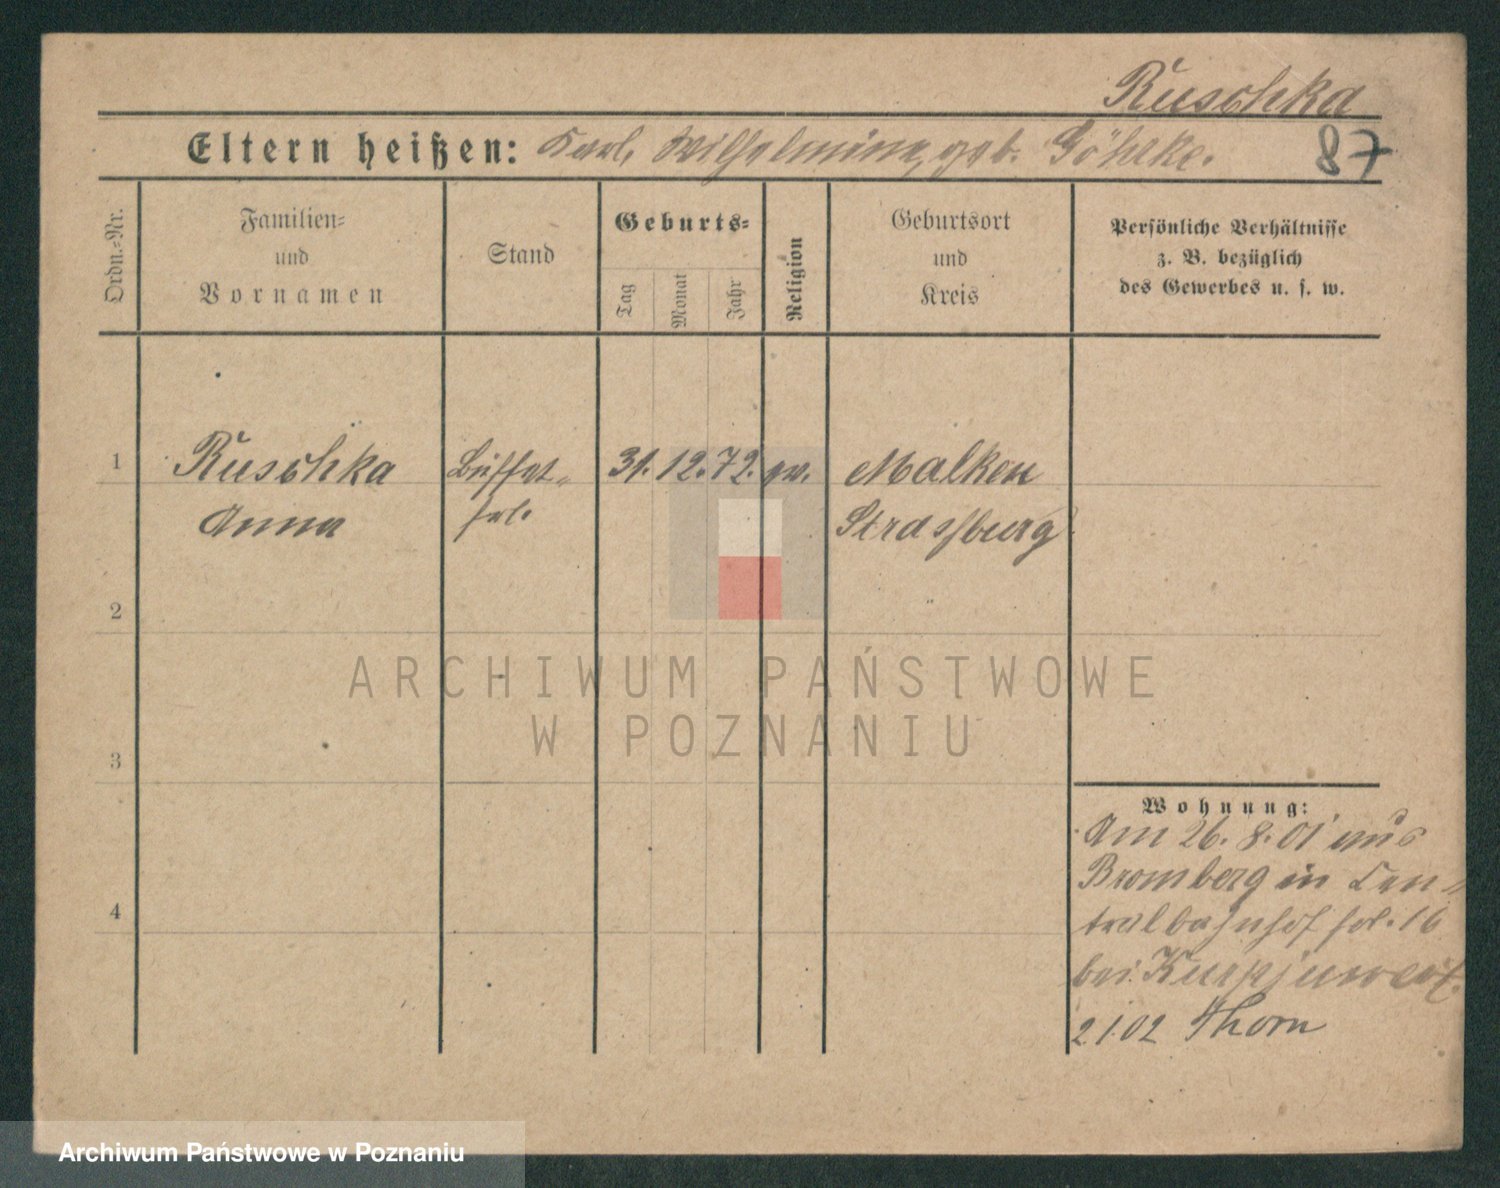 Ruschka
Eltern heißen: Karl, Wilhelmine, geb. Göhlke.
87
Ordn.-Nr.
Familien-
und
Vornamen
Stand
Geburts-
Tag
Monat
Jahr
Religion
Geburtsort
und
Kreis
Persönliche Verhältnisse
z. B. bezüglich
des Gewerbes u. s. w.
1
Ruschka
Anna
Büffet-
frl.
31. 12. 72. ev.
Malken
Strasburg
2
ARCHIWUM PAŃSTWOWE
W POZNANIU
3
Wohnung:
Am 26. 8. 01 aus
Bromberg in Cen-
tralbahnhof frl. 16
bei
4
2 1. 02 Thorn
Archiwum Państwowe w Poznaniu